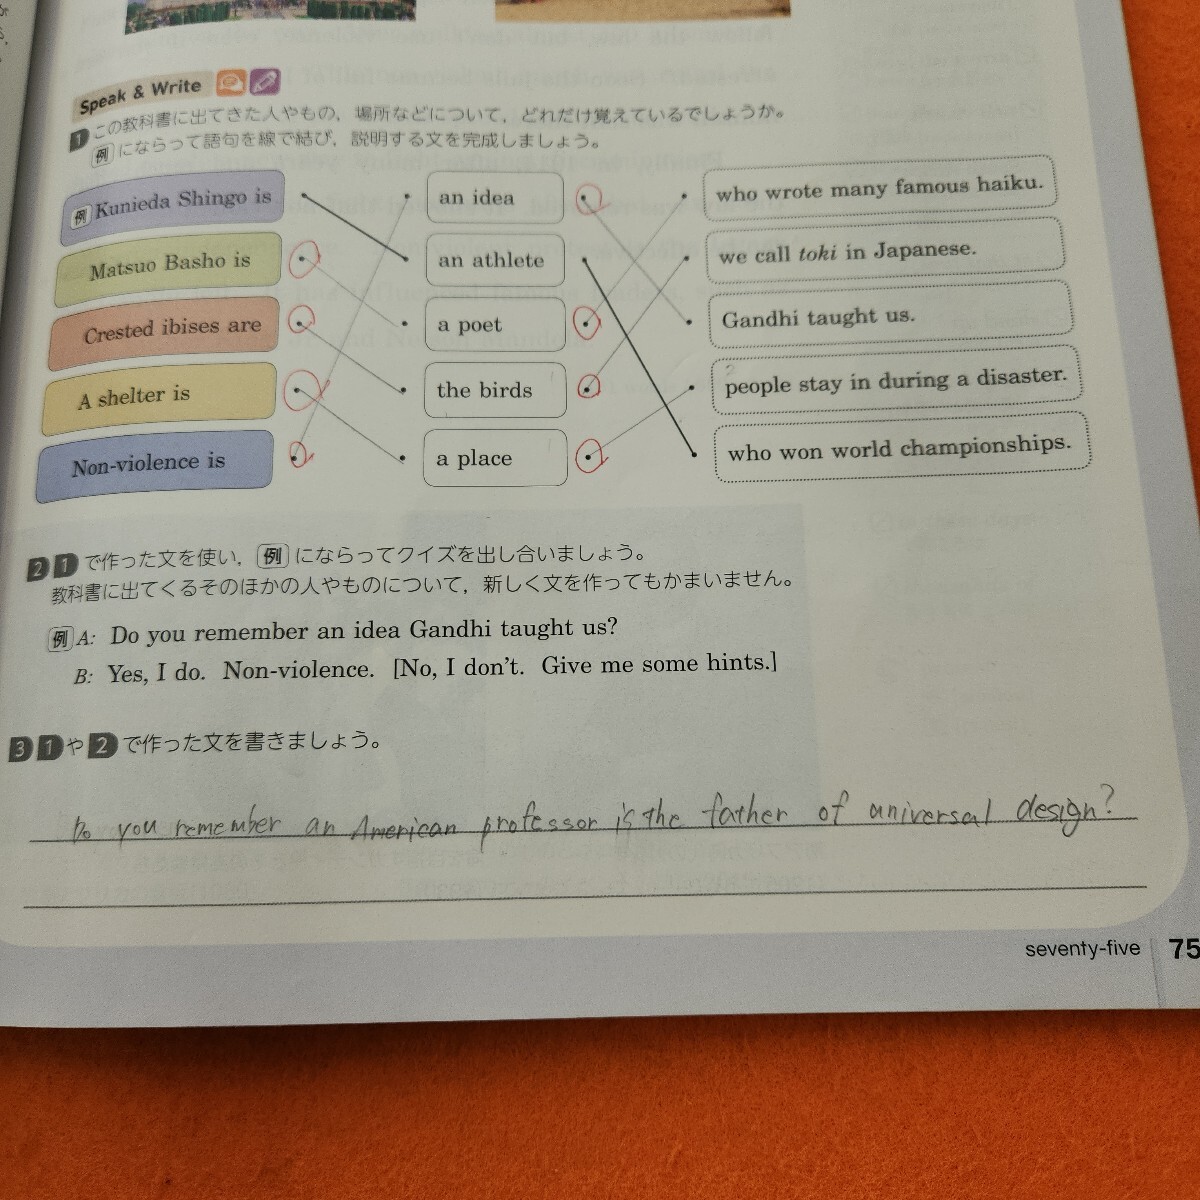 Speak & Write
1 この教科書に出てきた人やもの，場所などについて，どれだけ覚えているでしょうか。
例 にならって語句を線で結び，説明する文を完成しましょう。
例 Kunieda Shingo is
an idea
who wrote many famous haiku.
Matsuo Basho is
an athlete
we call toki in Japanese.
Crested ibises are
a poet
Gandhi taught us.
A shelter is
the birds
people stay in during a disaster.
Non-violence is
a place
who won world championships.
2 1 で作った文を使い，例 にならってクイズを出し合いましょう。
教科書に出てくるそのほかの人やものについて，新しく文を作ってもかまいません。
例 A: Do you remember an idea Gandhi taught us?
B: Yes, I do. Non-violence. [No, I don't. Give me some hints.]
3 1 や 2 で作った文を書きましょう。
Do you remember an American professor is the father of universal design?
seventy-five 75